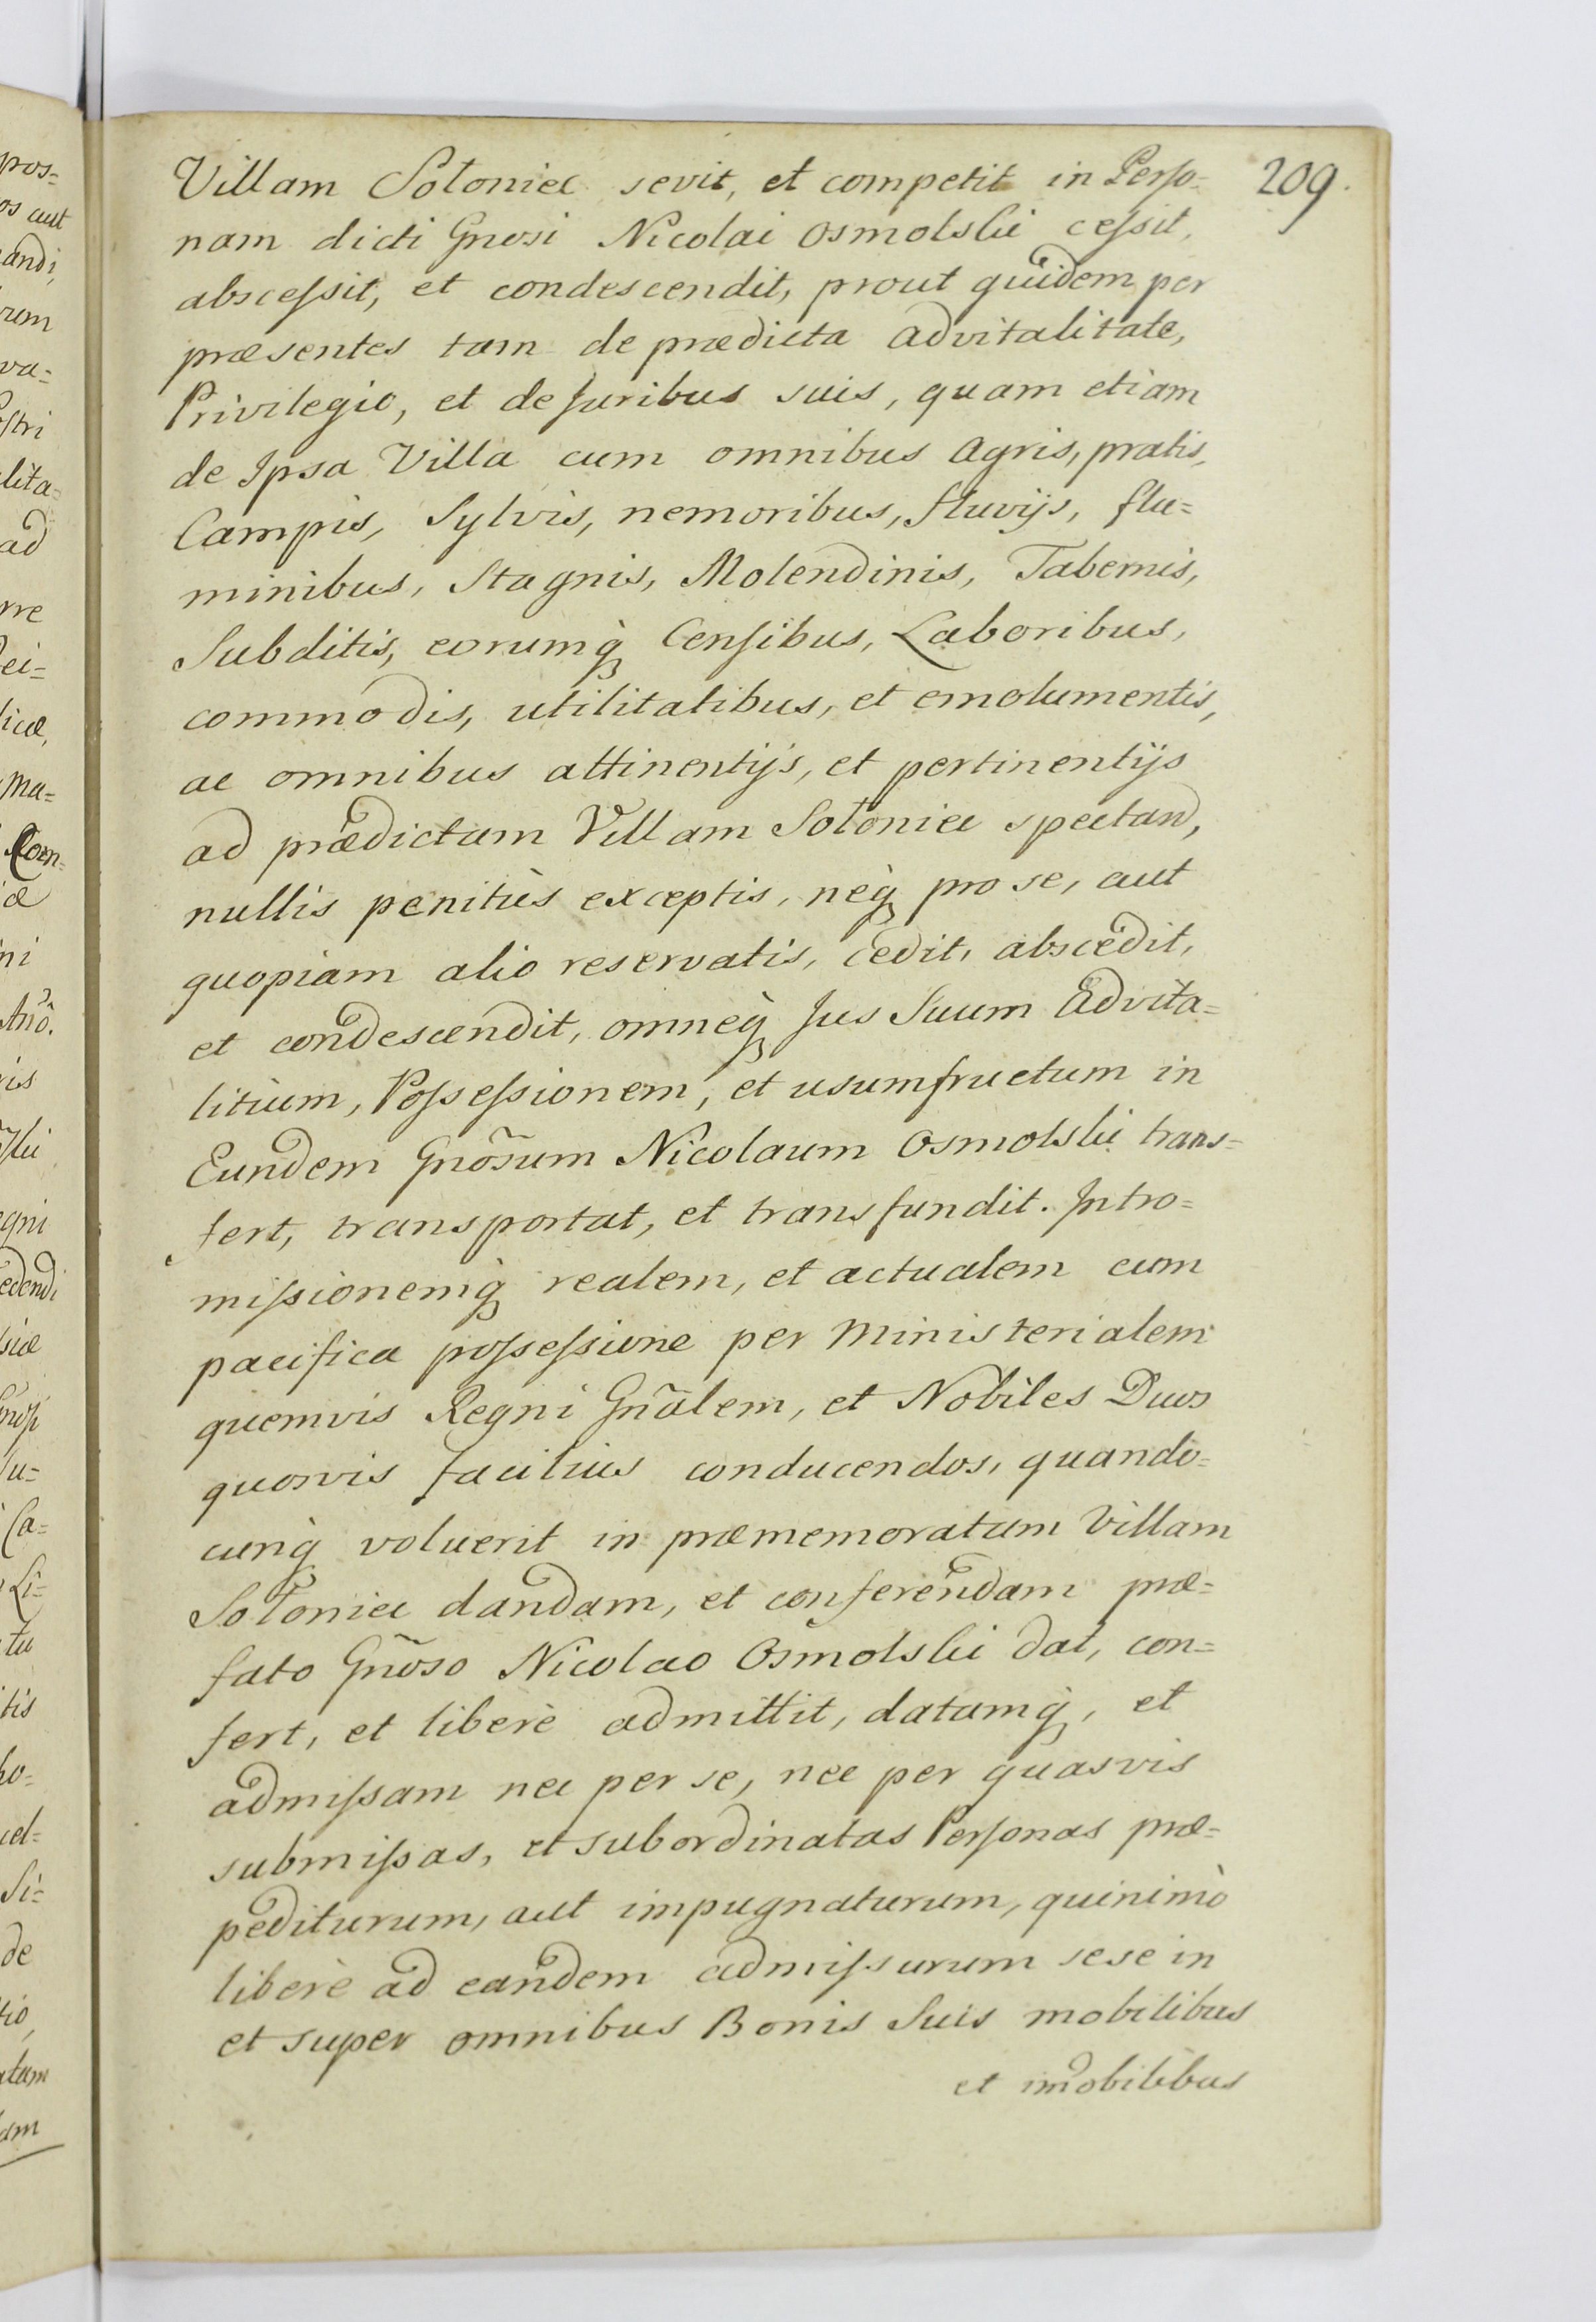 209.
Villam Sołoniec sevit, et competit in Perso=
nam dicti Gnosi Nicolai Osmolski cessit,
abscessit, et condescendit, prout quidem per
præsentes tam de prædicta advitalitate,
Privilegio, et de Juribus suis, quam etiam
de Ipsa Villa cum omnibus agris, pratis,
Campis, Sylvis, nemoribus, fluvijs, flu=
minibus, Stagnis, Molendinis, Tabernis,
Subditis, eorumq̀ Censibus, Laboribus,
commodis, utilitatibus, et emolumentis,
ac omnibus attinentijs, et pertinentijs
ad prædictam Villam Sołoniec spectand,
nullis penitùs exceptis, neq̀ pro se, aut
quopiam alio reservatis, cedit, abscedit,
et condescendit, omneq̀ Jus Suum advita=
litium, Possessionem, et usumfructum in
Eundem Gnõsum Nicolaum Osmolski trans=
fert, transportat, et transfundit. Intro=
missionemq̀ realem, et actualem cum
pacifica possessione per Ministerialem
quemvis Regni Gnãlem, et Nobiles Duos
quosvis facilius conducendos, quando=
cunq̀ voluerit in præmemoratam Villam
Sołoniec dandam, et conferendam præ=
fato Gnõso Nicolao Osmolski dat, con=
fert, et liberè admittit, datamq̀, et
admissam nec per se, nec per quasvis
submissas, et subordinatas Personas præ=
pediturum, aut impugnaturum, quinimò
liberè ad eandem admissurum sese in
et super omnibus Bonis Suis mobilibus
et im̃obilibus